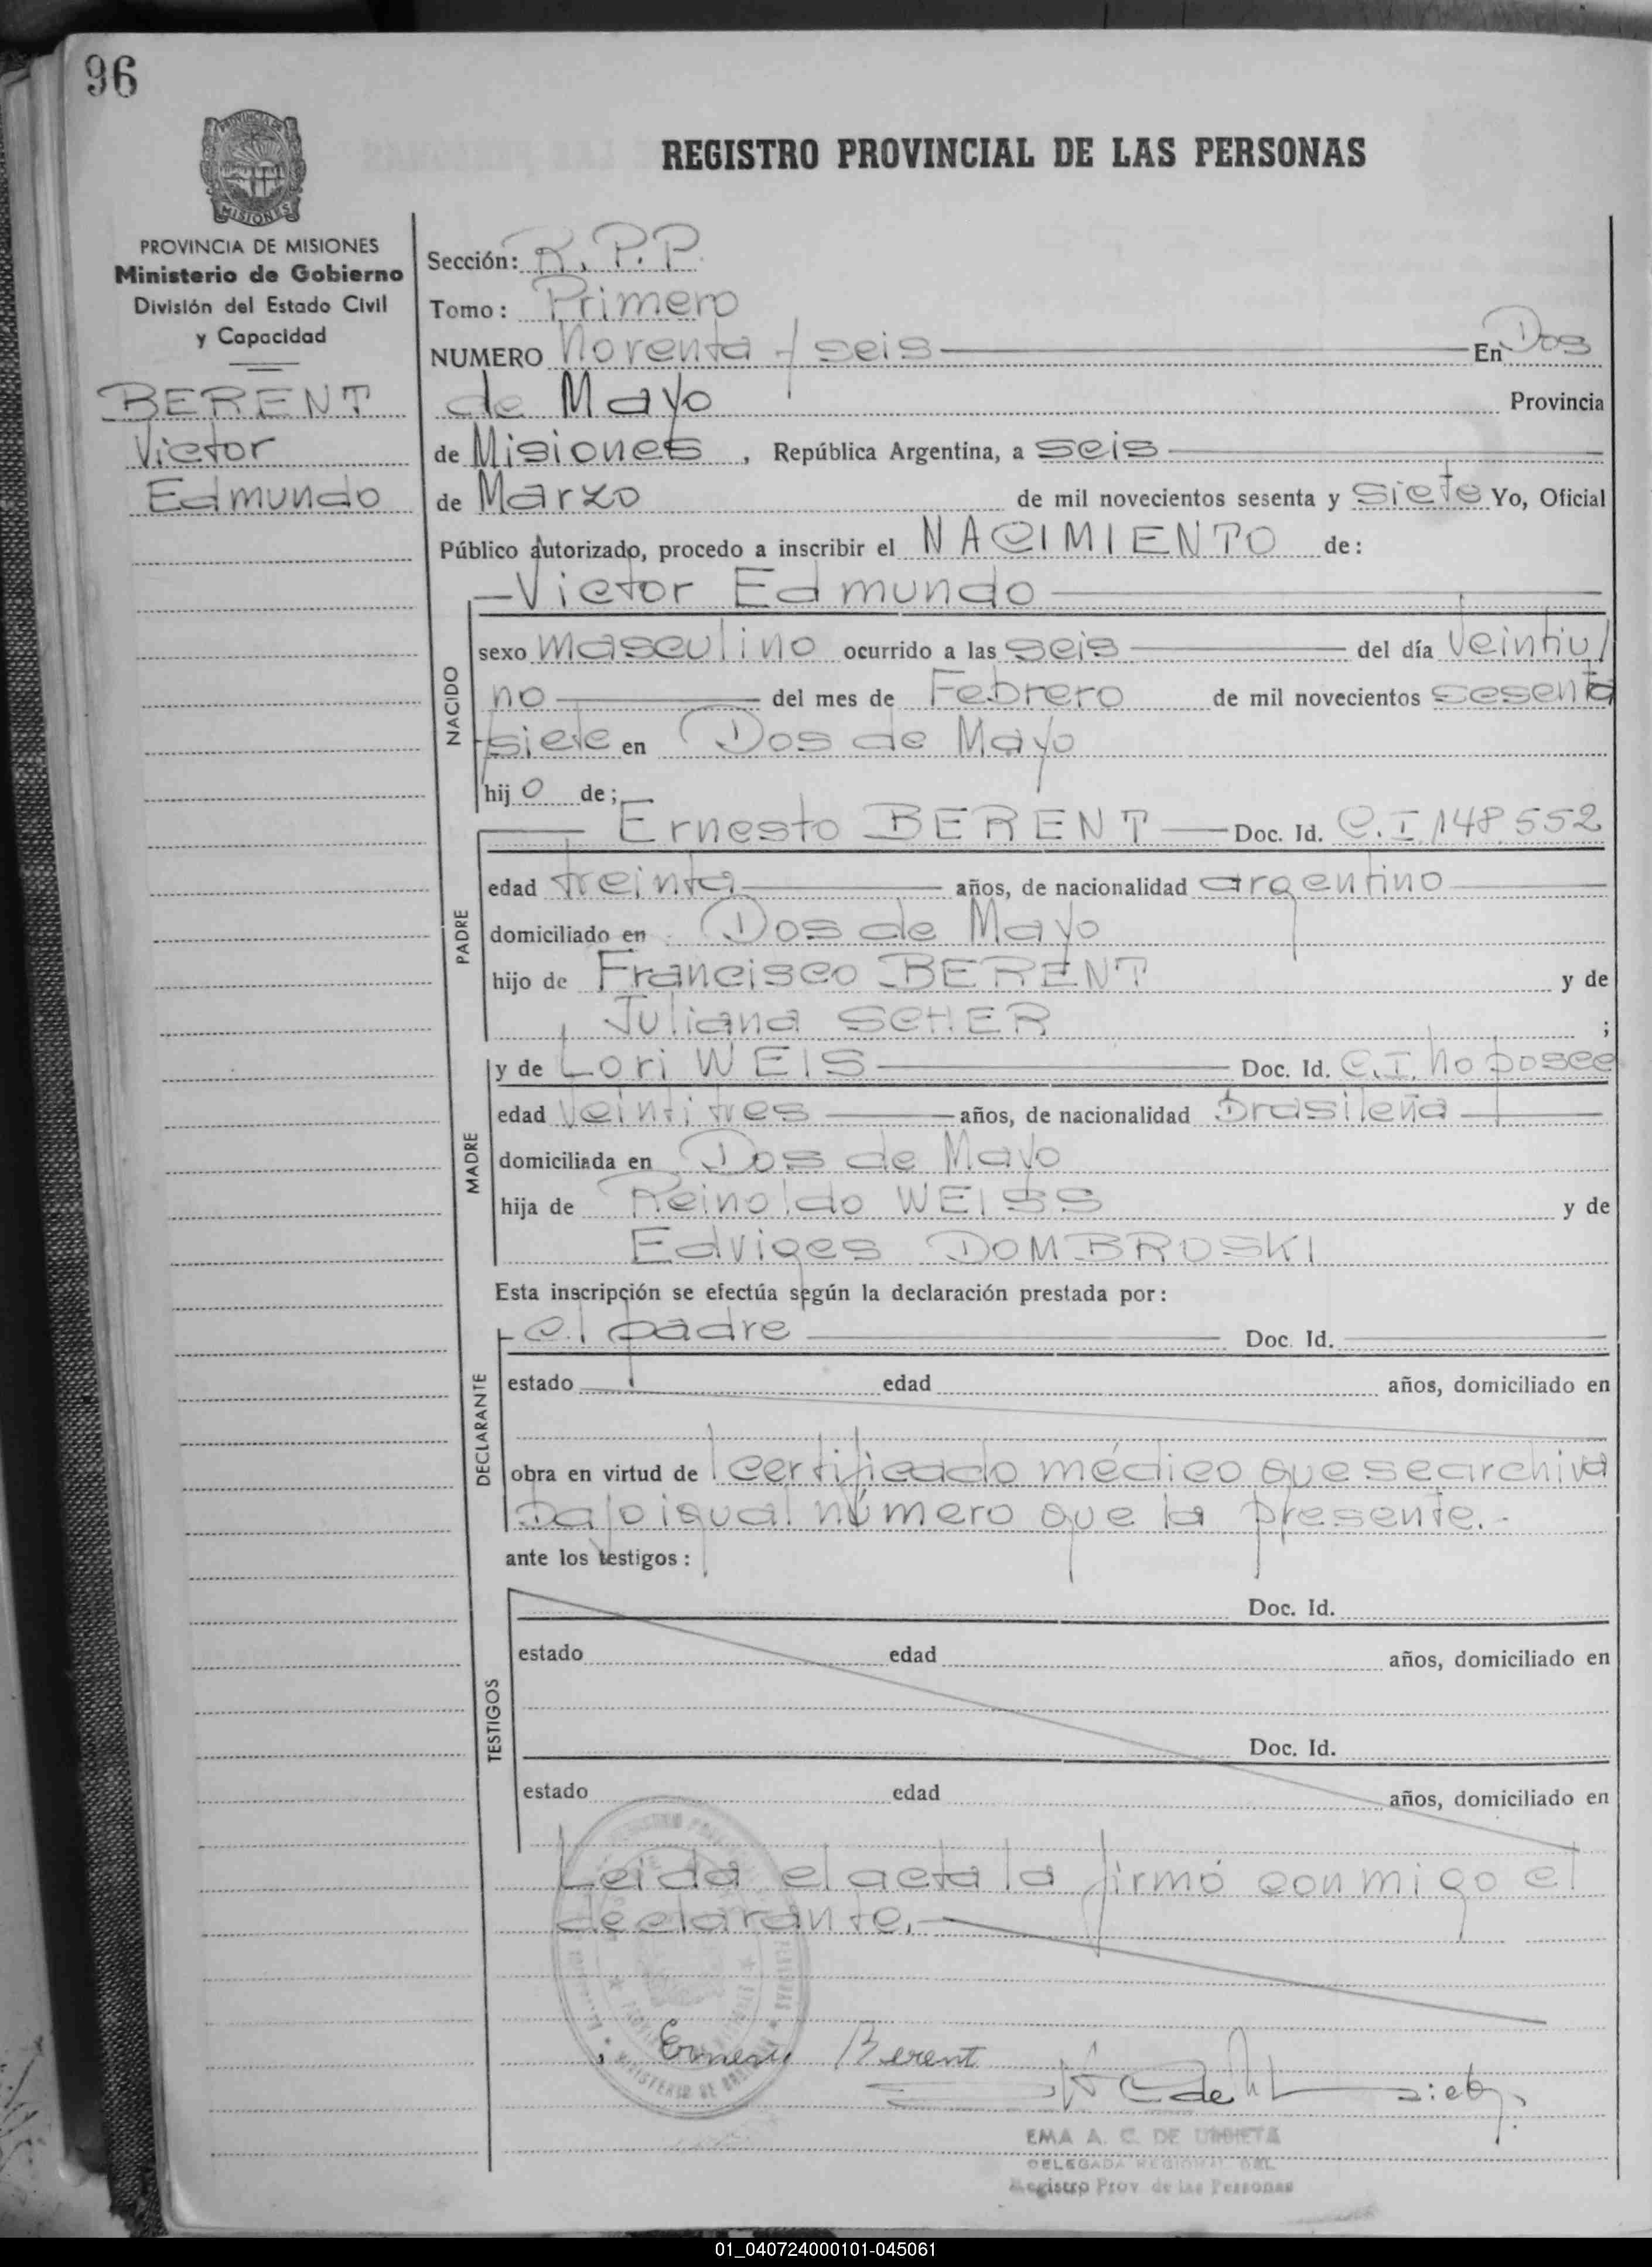 96
PROVINCIA DE
MISIONES
REGISTRO PROVINCIAL DE LAS PERSONAS
PROVINCIA DE MISIONES
Ministerio de Gobierno
División del Estado Civil
y Capacidad
BERENT
Victor
Edmundo
Sección: R. P. P.
Tomo: Primero
NUMERO Noventa y seis En Dos
de Mayo Provincia
de Misiones, República Argentina, a seis
de Marzo de mil novecientos sesenta y siete Yo, Oficial
Público autorizado, procedo a inscribir el NACIMIENTO de:
NACIDO
Victor Edmundo
sexo masculino ocurrido a las seis del día veintiu
no del mes de Febrero de mil novecientos sesenta
y siete en Dos de Mayo
hijo de;
PADRE
Ernesto BERENT Doc. Id. C.I 148,552
edad treinta años, de nacionalidad argentino
domiciliado en Dos de Mayo
hijo de Francisco BERENT y de
Juliana SCHER ;
MADRE
y de Lori WEIS Doc. Id. C.I. No posee
edad veintitres años, de nacionalidad brasileña
domiciliada en Dos de Mayo
hija de Reinoldo WEISS y de
Edviges DOMBROSKI
Esta inscripción se efectúa según la declaración prestada por:
DECLARANTE
el padre Doc. Id.
estado edad años, domiciliado en
obra en virtud de certificado médico que se archiva
bajo igual número que la presente.-
ante los testigos:
TESTIGOS
Doc. Id.
estado edad años, domiciliado en
Doc. Id.
estado edad años, domiciliado en
Leida el acta la firmó conmigo el
declarante.
Ernesto Berent
EMA A. C. DE URRIETA
DELEGADA REGIONAL DEL
Registro Prov de las Personas
01_040724000101-045061